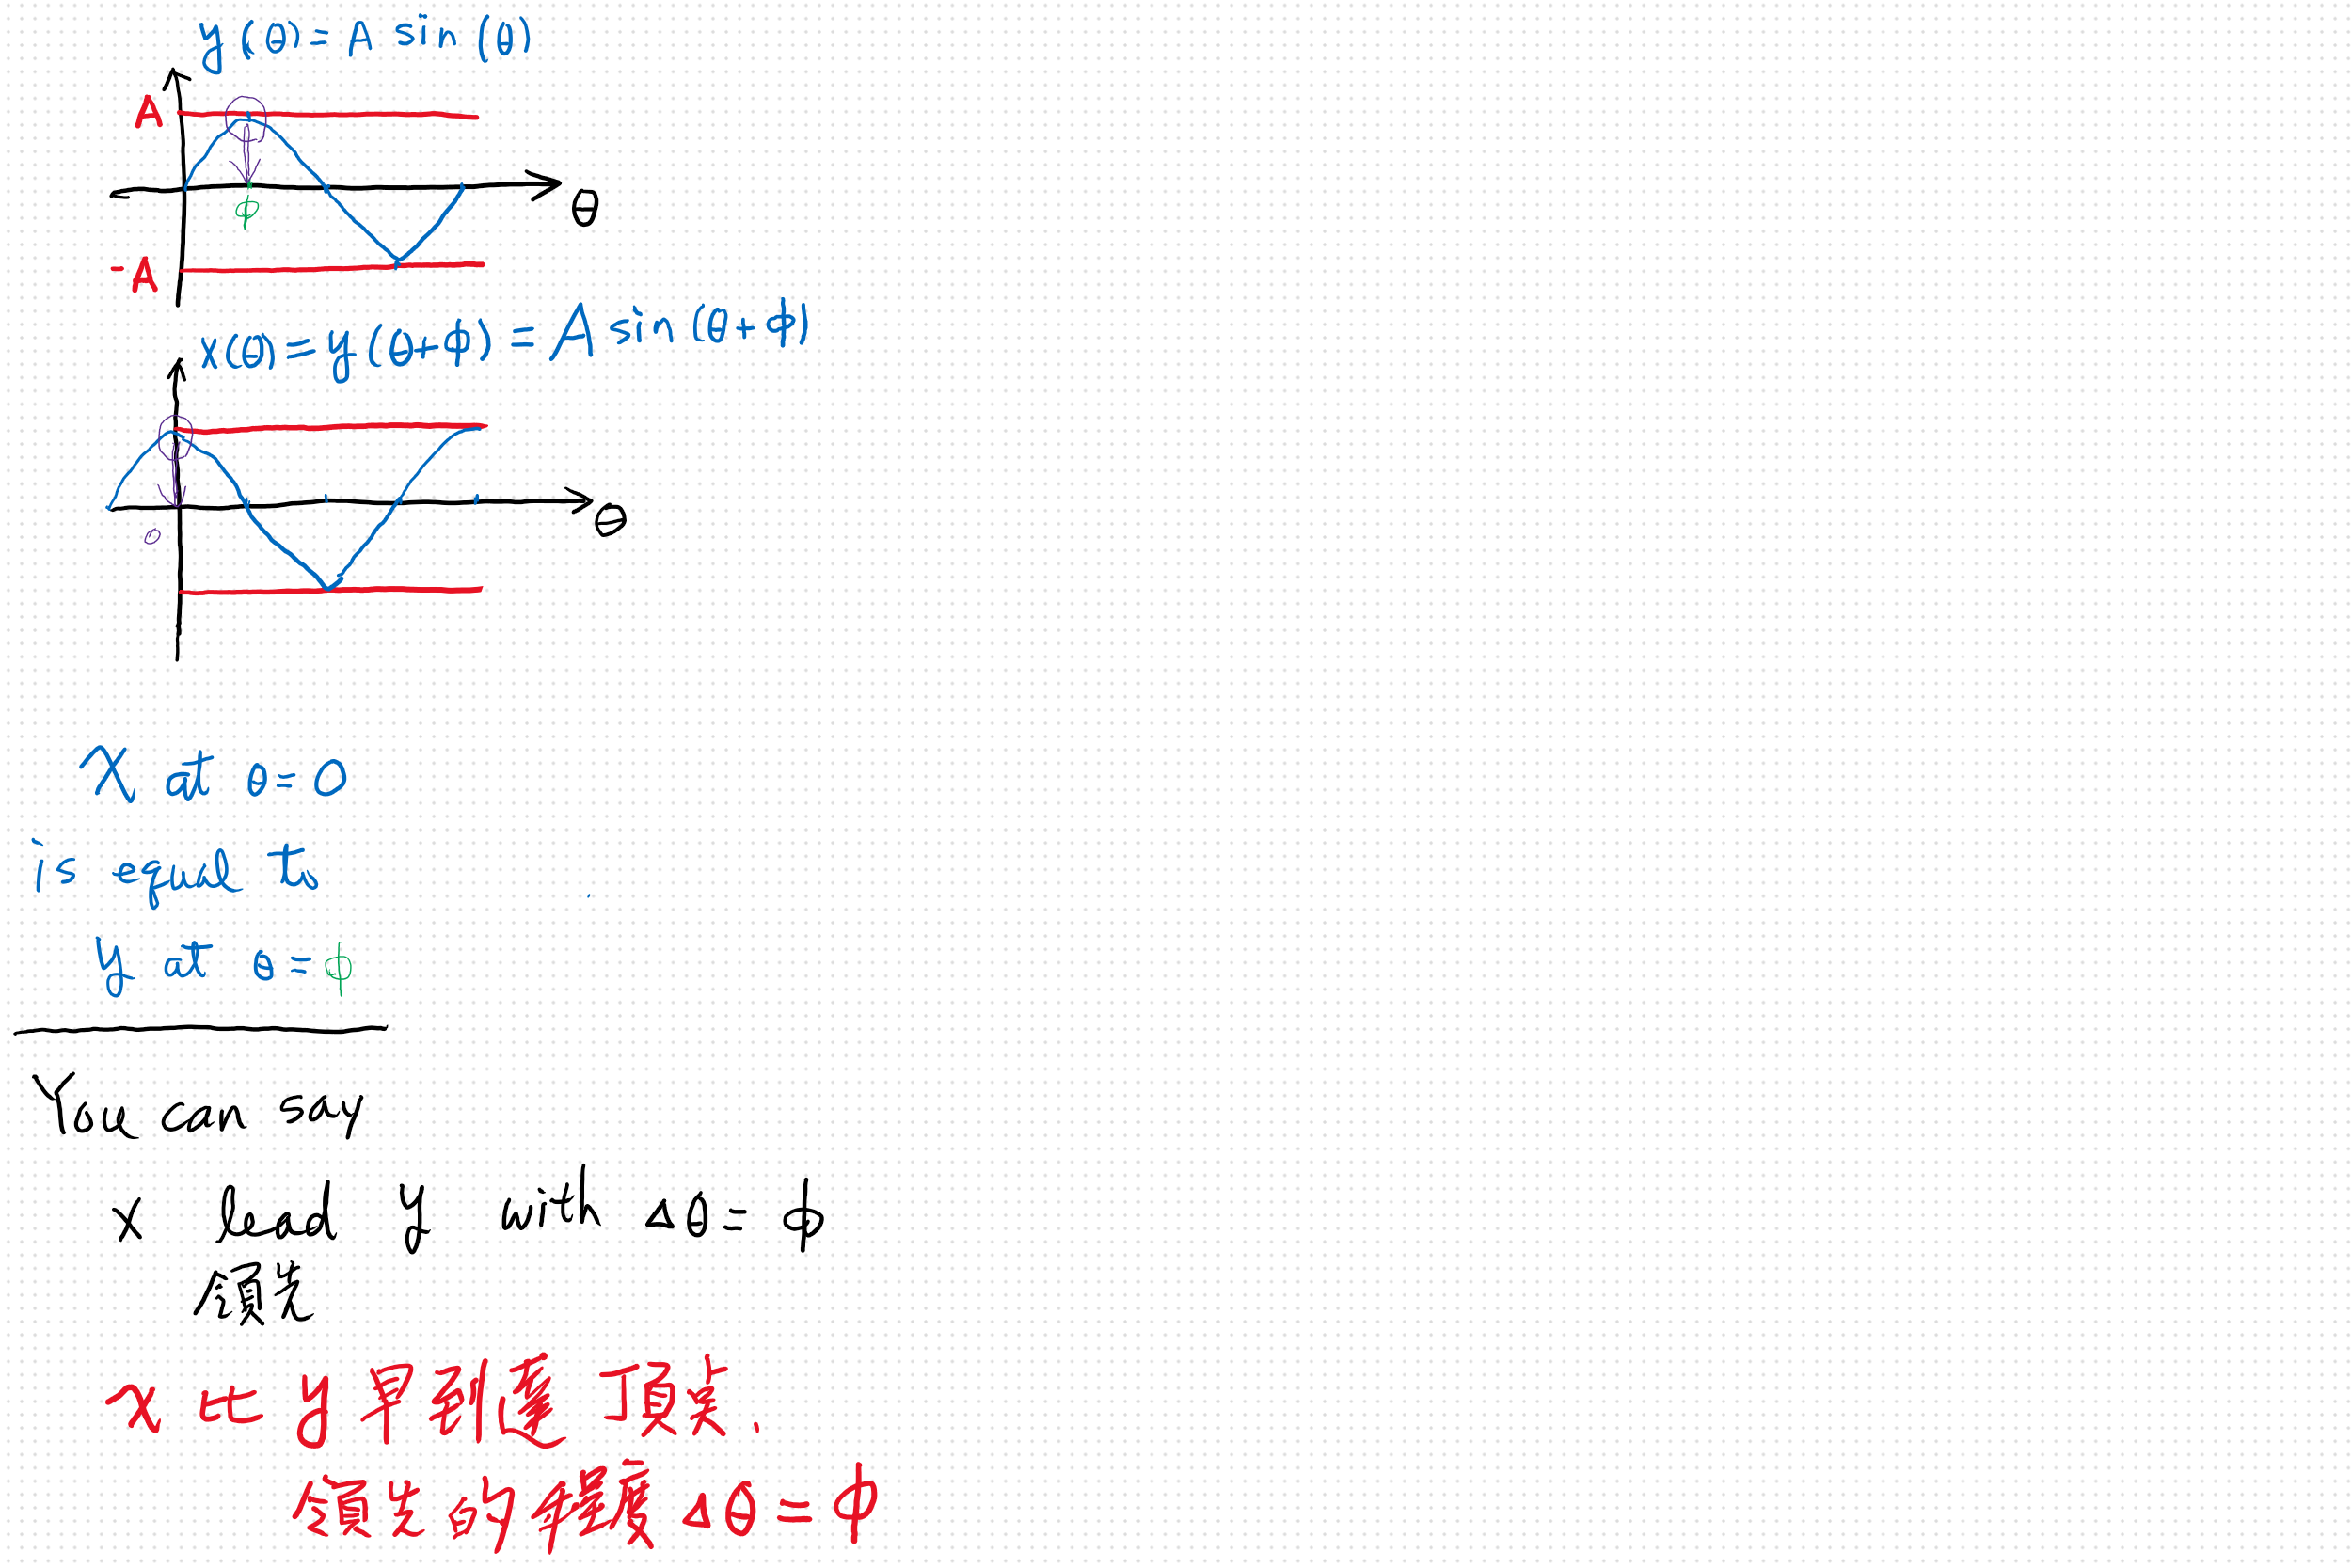 y(θ)= A sin (θ)
A
ϕ
θ
-A
x(θ)= y(θ+ϕ) = A sin(θ+ϕ)
θ
0
x at θ=0
is equal to
y at θ=ϕ
You can say
x lead y with Δθ= ϕ
領先
x 比 y 早到達頂点.
領先的程度 Δθ=ϕ